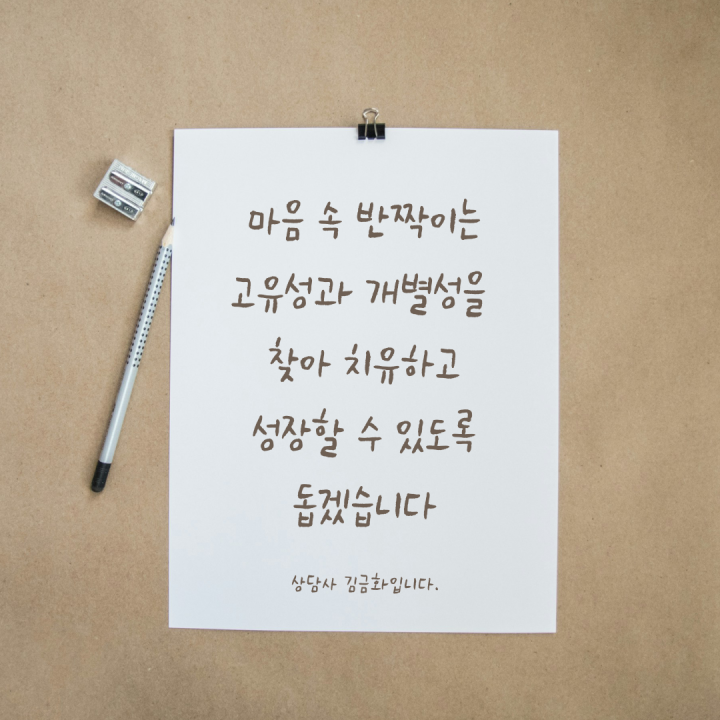 마음 속 반짝이는
고유성과 개별성을
찾아 치유하고
성장할 수 있도록
돕겠습니다
상담사 김금화입니다.